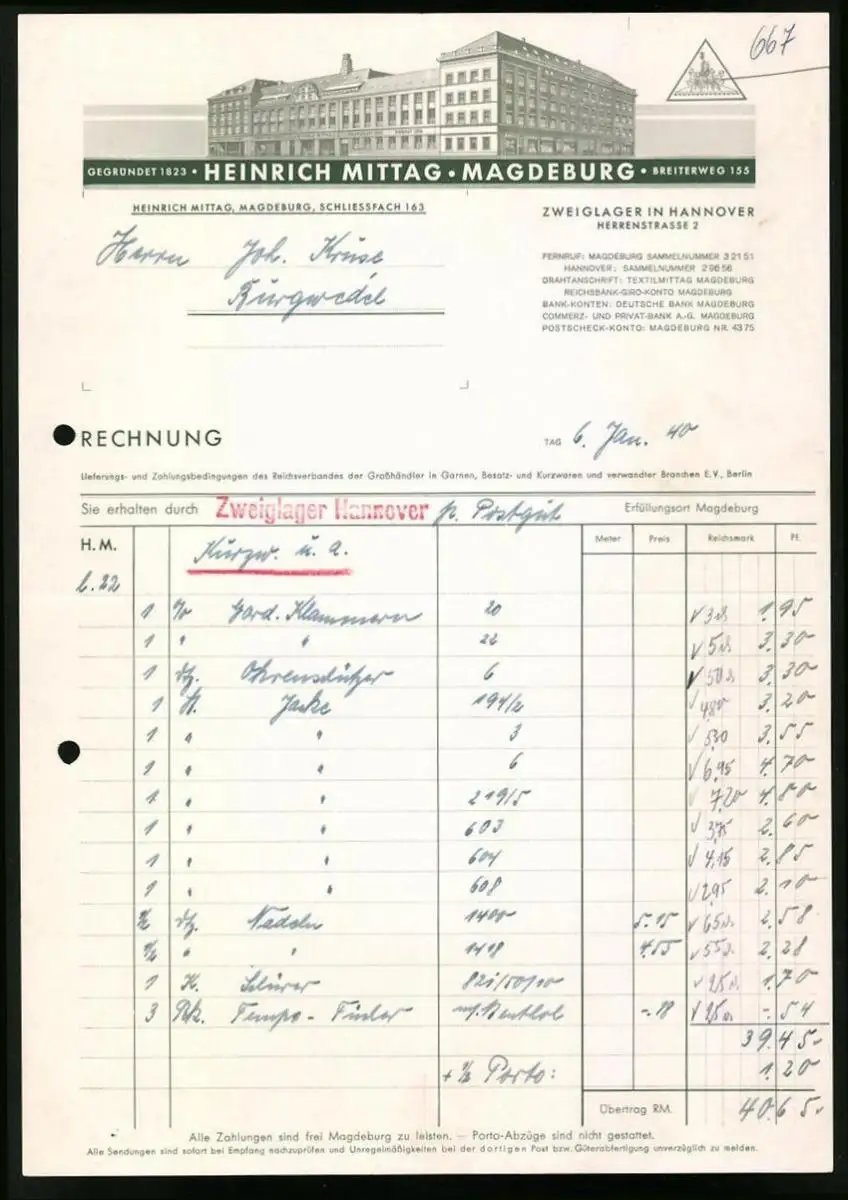 667
GEGRÜNDET 1823 • HEINRICH MITTAG • MAGDEBURG • BREITERWEG 155
HEINRICH MITTAG, MAGDEBURG, SCHLIESSFACH 163
Herrn Joh. Kruse
Burgwedel
ZWEIGLAGER IN HANNOVER
HERRENSTRASSE 2
FERNRUF: MAGDEBURG SAMMELNUMMER 3 21 51
HANNOVER: SAMMELNUMMER 2 96 56
DRAHTANSCHRIFT: TEXTILMITTAG MAGDEBURG
REICHSBANK-GIRO-KONTO MAGDEBURG
BANK-KONTEN: DEUTSCHE BANK MAGDEBURG
COMMERZ- UND PRIVAT-BANK A.-G. MAGDEBURG
POSTSCHECK-KONTO: MAGDEBURG NR. 4375
RECHNUNG
TAG 6. Jan. 40
Lieferungs- und Zahlungsbedingungen des Reichsverbandes der Großhändler in Garnen, Besatz- und Kurzwaren und verwandter Branchen E.V., Berlin
Sie erhalten durch Zweiglager Hannover p. Postgut Erfüllungsort Magdeburg
H. M. Kurzw. u. a. Meter Preis Reichsmark Pf.
1 Gard. Klammern 20 1.95
1 " " 22 3.30
1 dtz. 6 3.30
1 K. Jacke 194/2 4,80 3.20
1 " " 3 5,30 3.55
1 " " 6 6,95 4.70
1 " " 219/5 7,20 4.80
1 " " 603 3,75 2.60
1 " " 604 4,15 2.85
1 " " 608 2,95 2.10
½ dtz. Nadeln 1400 5.15 2.58
½ " " 1418 4.55 2.28
1 K. 1.70
3 Pck. Tempo-Tücher -.18 -.54
39.45
+ ½ Porto: 1.20
Übertrag RM. 40.65
Alle Zahlungen sind frei Magdeburg zu leisten. — Porto-Abzüge sind nicht gestattet.
Alle Sendungen sind sofort bei Empfang nachzuprüfen und Unregelmäßigkeiten bei der dortigen Post bzw. Güterabfertigung unverzüglich zu melden.